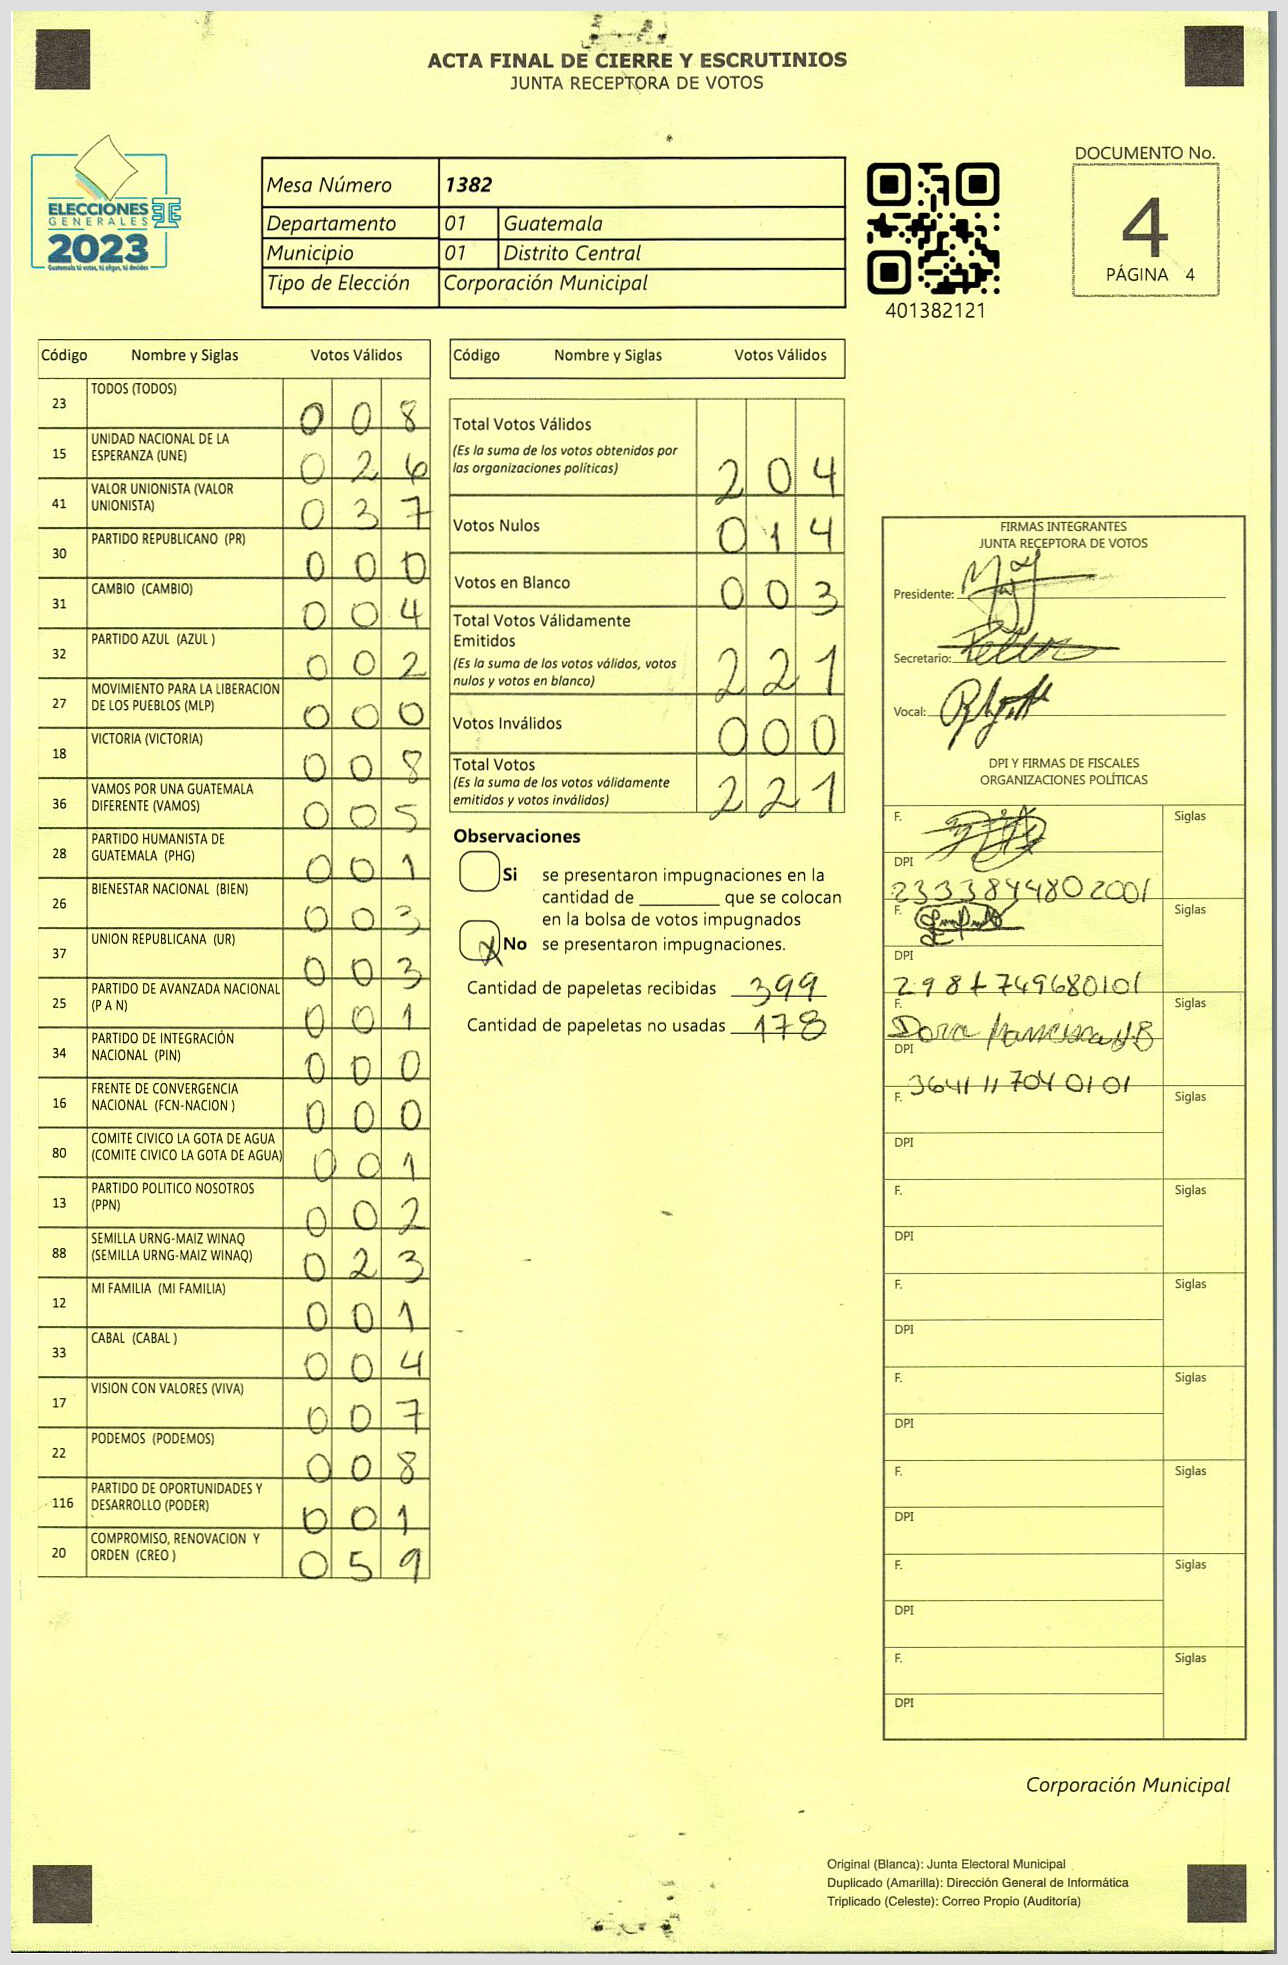 ACTA FINAL DE CIERRE Y ESCRUTINIOS
JUNTA RECEPTORA DE VOTOS
ELECCIONES
GENERALES
2023
Guatemala tú votas, tú eliges, tú decides
Mesa Número 1382
Departamento 01 Guatemala
Municipio 01 Distrito Central
Tipo de Elección Corporación Municipal
401382121
DOCUMENTO No.
4
PÁGINA 4
Código Nombre y Siglas Votos Válidos
23 TODOS (TODOS) 0 0 8
15 UNIDAD NACIONAL DE LA
ESPERANZA (UNE) 0 2 6
41 VALOR UNIONISTA (VALOR
UNIONISTA) 0 3 7
30 PARTIDO REPUBLICANO (PR) 0 0 0
31 CAMBIO (CAMBIO) 0 0 4
32 PARTIDO AZUL (AZUL ) 0 0 2
27 MOVIMIENTO PARA LA LIBERACION
DE LOS PUEBLOS (MLP) 0 0 0
18 VICTORIA (VICTORIA) 0 0 8
36 VAMOS POR UNA GUATEMALA
DIFERENTE (VAMOS) 0 0 5
28 PARTIDO HUMANISTA DE
GUATEMALA (PHG) 0 0 1
26 BIENESTAR NACIONAL (BIEN) 0 0 3
37 UNION REPUBLICANA (UR) 0 0 3
25 PARTIDO DE AVANZADA NACIONAL
(P A N) 0 0 1
34 PARTIDO DE INTEGRACIÓN
NACIONAL (PIN) 0 0 0
16 FRENTE DE CONVERGENCIA
NACIONAL (FCN-NACION ) 0 0 0
80 COMITE CIVICO LA GOTA DE AGUA
(COMITE CIVICO LA GOTA DE AGUA) 0 0 1
13 PARTIDO POLITICO NOSOTROS
(PPN) 0 0 2
88 SEMILLA URNG-MAIZ WINAQ
(SEMILLA URNG-MAIZ WINAQ) 0 2 3
12 MI FAMILIA (MI FAMILIA) 0 0 1
33 CABAL (CABAL ) 0 0 4
17 VISION CON VALORES (VIVA) 0 0 7
22 PODEMOS (PODEMOS) 0 0 8
116 PARTIDO DE OPORTUNIDADES Y
DESARROLLO (PODER) 0 0 1
20 COMPROMISO, RENOVACION Y
ORDEN (CREO ) 0 5 9
Código Nombre y Siglas Votos Válidos
Total Votos Válidos
(Es la suma de los votos obtenidos por
las organizaciones políticas) 2 0 4
Votos Nulos 0 1 4
Votos en Blanco 0 0 3
Total Votos Válidamente
Emitidos
(Es la suma de los votos válidos, votos
nulos y votos en blanco) 2 2 1
Votos Inválidos 0 0 0
Total Votos
(Es la suma de los votos válidamente
emitidos y votos inválidos) 2 2 1
Observaciones
Si se presentaron impugnaciones en la
cantidad de ________ que se colocan
en la bolsa de votos impugnados
X No se presentaron impugnaciones.
Cantidad de papeletas recibidas 399
Cantidad de papeletas no usadas 178
FIRMAS INTEGRANTES
JUNTA RECEPTORA DE VOTOS
Presidente:
Secretario:
Vocal:
DPI Y FIRMAS DE FISCALES
ORGANIZACIONES POLÍTICAS
F. Siglas
DPI
2333844802001
F. Siglas
DPI
F. Siglas
Dora
DPI
3641117040101
F. Siglas
DPI
F. Siglas
DPI
F. Siglas
DPI
F. Siglas
DPI
F. Siglas
DPI
F. Siglas
DPI
F. Siglas
DPI
Corporación Municipal
Original (Blanca): Junta Electoral Municipal
Duplicado (Amarilla): Dirección General de Informática
Triplicado (Celeste): Correo Propio (Auditoría)